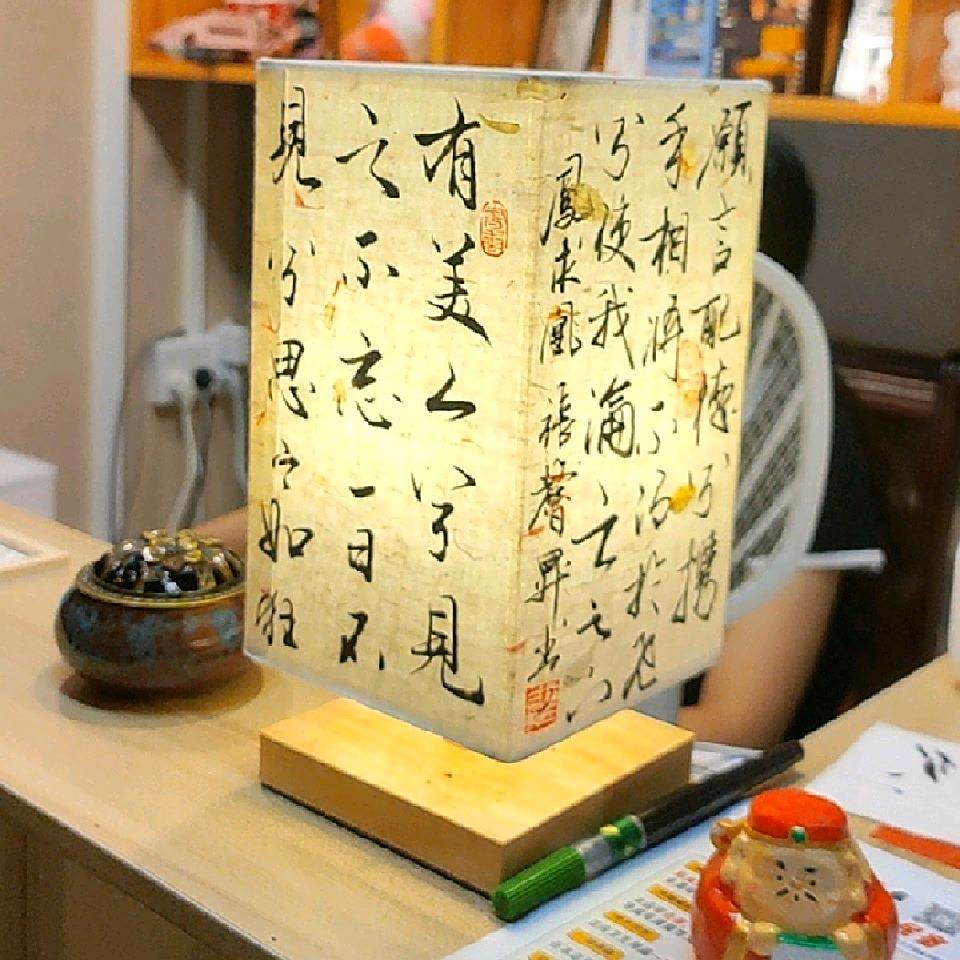 有美人兮見
之不忘一日不
見兮思之如狂
願言配德兮攜
手相將不得於飛
兮使我淪亡
鳳求凰